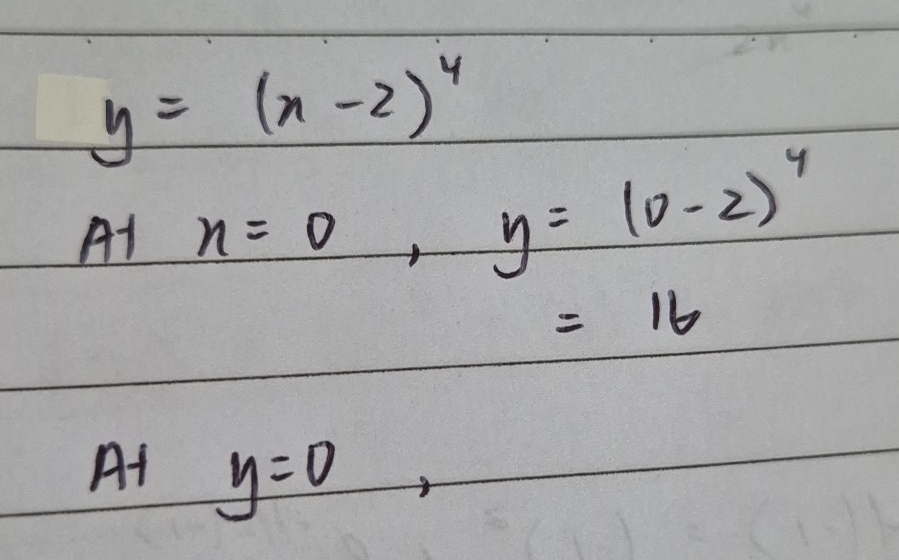 y = (x - 2)^4
At x = 0 , y = (0 - 2)^4
= 16
At y = 0 ,